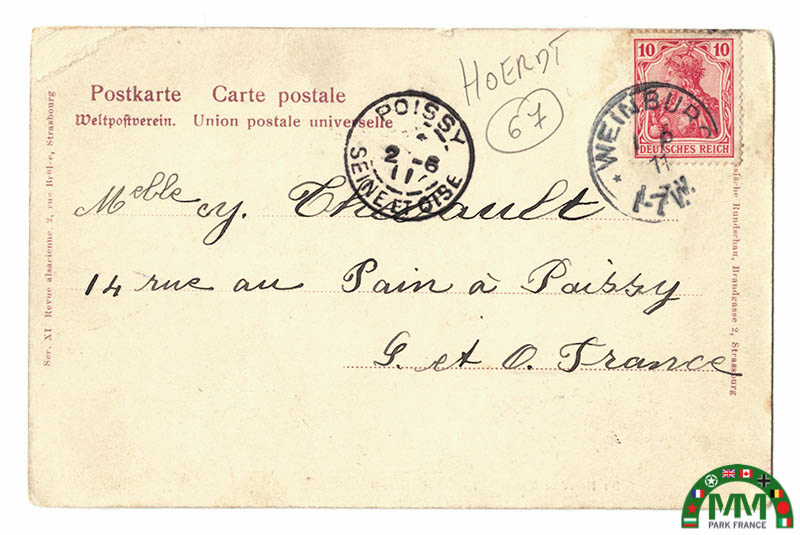 HOERDT
67
10 10
DEUTSCHES REICH
WEINBURG
11
1-7N.
Postkarte Carte postale
Weltpostverein. Union postale universelle
POISSY
2-6
11
SEINE ET OISE
Melle y. Thérault
14 rue au Pain à Poissy
S. et O. France
Ser. XI Revue alsacienne 2, rue Brûl-e, Strasbourg
sische Rundschau, Brandgasse 2, Strassburg
MM
PARK FRANCE